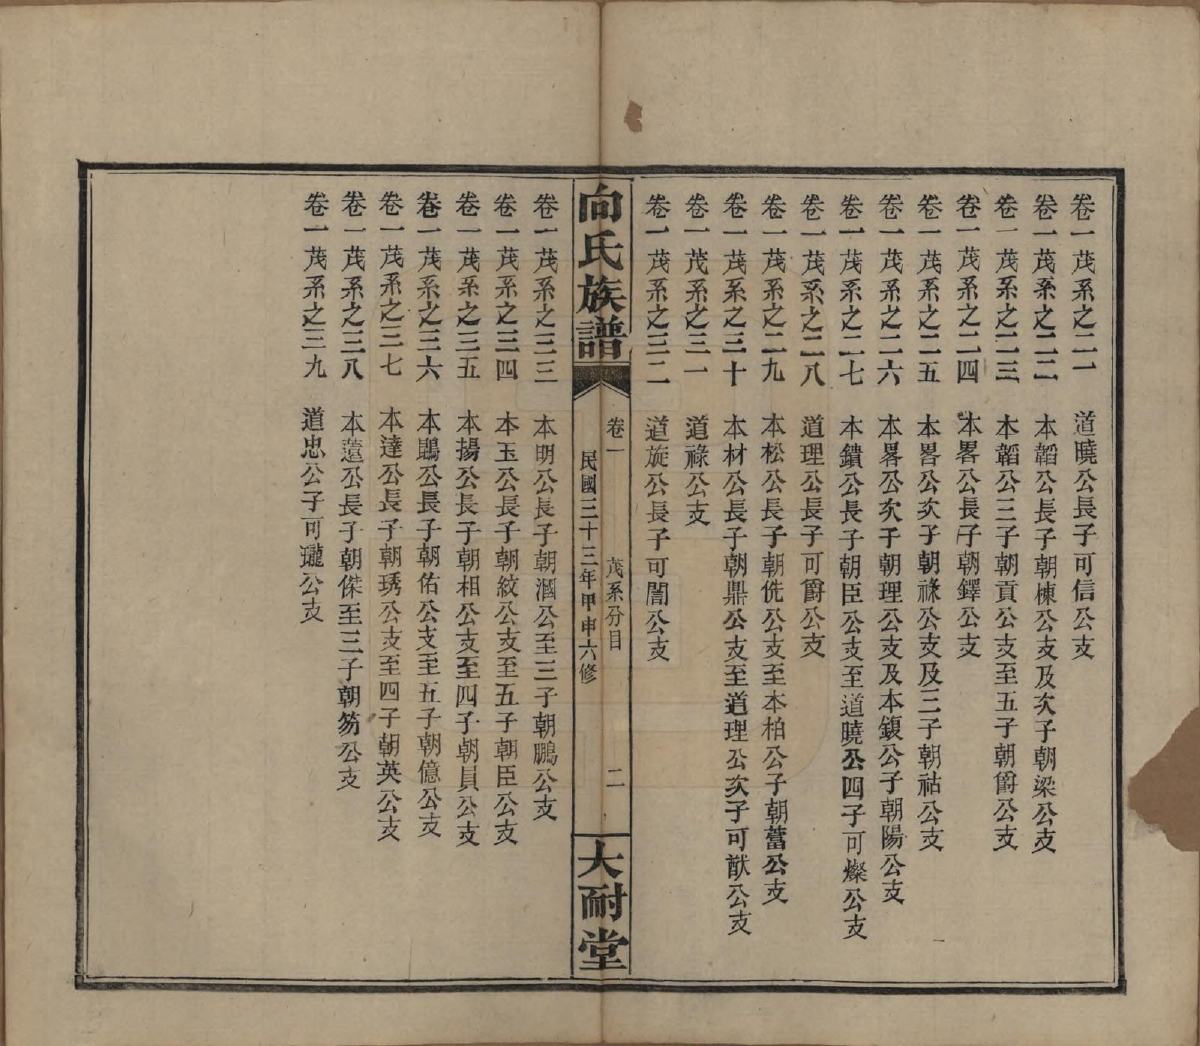 卷一茂系之二一 道曉公長子可信公支
卷一茂系之二二 本韜公長子朝棟公支及次子朝梁公支
卷一茂系之二三 本韜公三子朝貢公支至五子朝爵公支
卷一茂系之二四 本畧公長子朝鐸公支
卷一茂系之二五 本畧公次子朝祿公支及三子朝祜公支
卷一茂系之二六 本畧公次子朝理公支及本鍑公子朝陽公支
卷一茂系之二七 本鐀公長子朝臣公支至道曉公四子可燦公支
卷一茂系之二八 道理公長子可爵公支
卷一茂系之二九 本松公長子朝侁公支至本柏公子朝蕾公支
卷一茂系之三十 本材公長子朝鼎公支至道理公次子可猷公支
卷一茂系之三一 道祿公支
卷一茂系之三二 道旋公長子可誾公支
向氏族譜
卷一 茂系分目 二
民國三十三年甲申六修
大耐堂
卷一茂系之三三 本明公長子朝溷公至三子朝鵬公支
卷一茂系之三四 本玉公長子朝紋公支至五子朝臣公支
卷一茂系之三五 本揚公長子朝相公支至四子朝員公支
卷一茂系之三六 本鵾公長子朝佑公支至五子朝億公支
卷一茂系之三七 本達公長子朝琇公支至四子朝英公支
卷一茂系之三八 本蘧公長子朝傑至三子朝笏公支
卷一茂系之三九 道忠公子可瓏公支